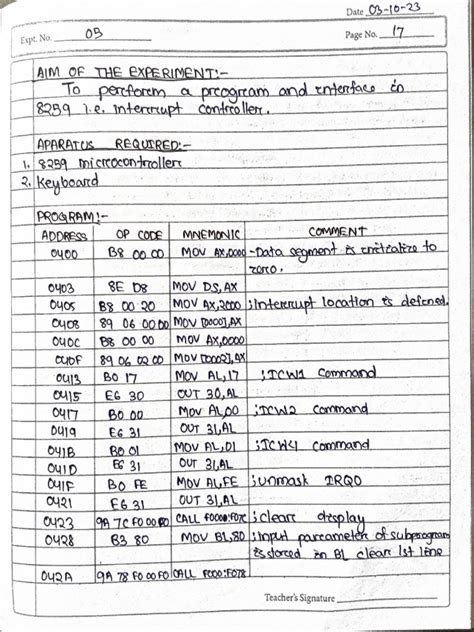 Date 03-10-23
Expt. No. 03
Page No. 17
AIM OF THE EXPERIMENT:-
To perform a program and interface in
8259 i.e. interrupt controller.
APARATUS REQUIRED:-
1. 8259 microcontroller
2. Keyboard
PROGRAM:-
ADDRESS OP CODE MNEMONIC COMMENT
0400 B8 00 00 MOV AX,0000 -Data segment is initialize to
zero.
0403 8E D8 MOV DS,AX
0405 B8 00 20 MOV AX,2000 ;Interrupt location is defined.
0408 89 06 00 00 MOV [0000],AX
040C B8 00 00 MOV AX,0000
040F 89 06 02 00 MOV [0002],AX
0413 B0 17 MOV AL,17 ;ICW1 Command
0415 E6 30 OUT 30,AL
0417 B0 00 MOV AL,00 ;ICW2 Command
0419 E6 31 OUT 31,AL
041B B0 01 MOV AL,01 ;ICW4 Command
041D E6 31 OUT 31,AL
041F B0 FE MOV AL,FE ;unmask IRQ0
0421 E6 31 OUT 31,AL
0423 9A 7C F0 00 F0 CALL F000:F07C ;clear display
0428 B3 80 MOV BL,80 ;input parameter of subprogram
is stored in BL clear 1st line
042A 9A 78 F0 00 F0 CALL F000:F078
Teacher's Signature